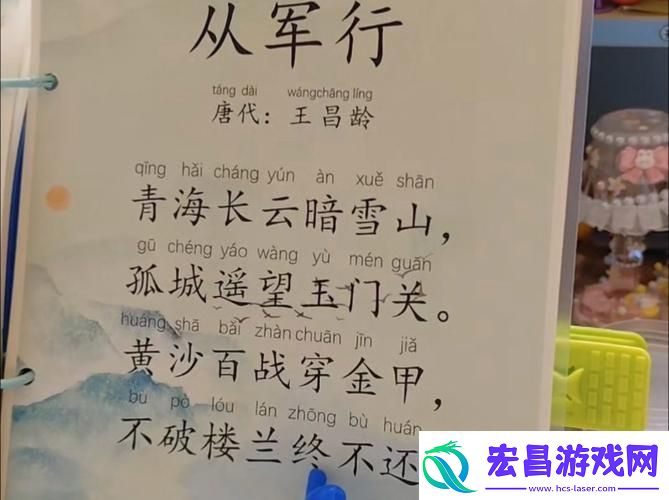 从军行
táng dài wángchāng líng
唐代：王昌龄
qīng hǎi cháng yún àn xuě shān
青海长云暗雪山，
gū chéng yáo wàng yù mén guān
孤城遥望玉门关。
huáng shā bǎi zhàn chuān jīn jiǎ
黄沙百战穿金甲，
bù pò lóu lán zhōng bù huán
不破楼兰终不还
宏昌游戏网
www.hcs-laser.com